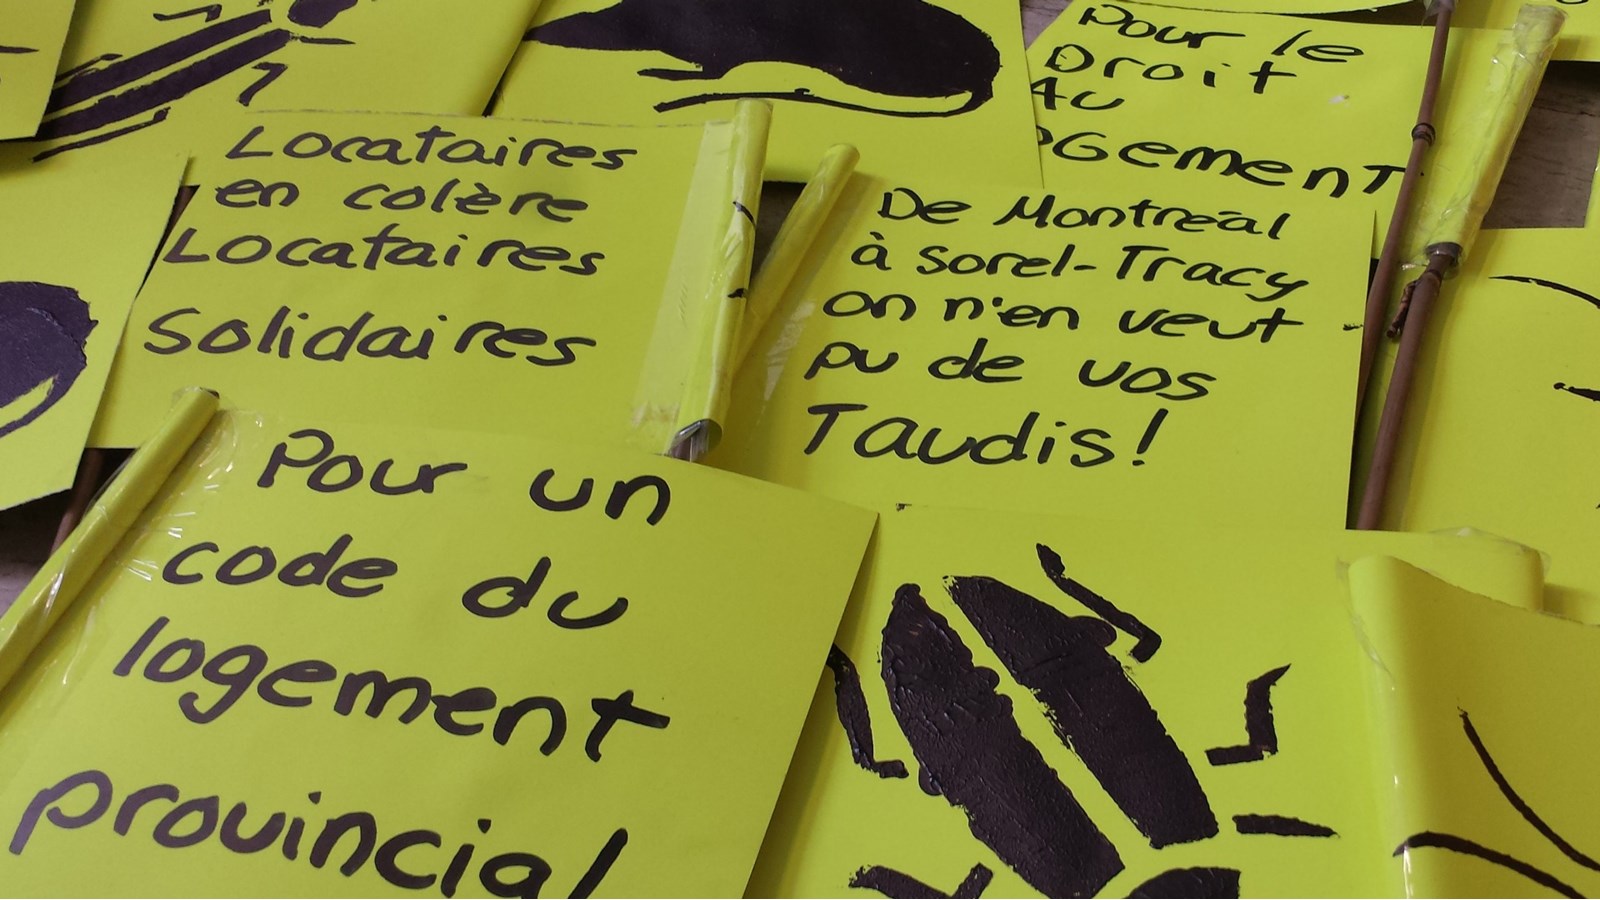 Pour le
Droit
Au
OGement
Locataires
en colère
Locataires
Solidaires
De Montréal
à Sorel-Tracy
on n'en veut
pu de vos
Taudis!
Pour un
code du
logement
provincial